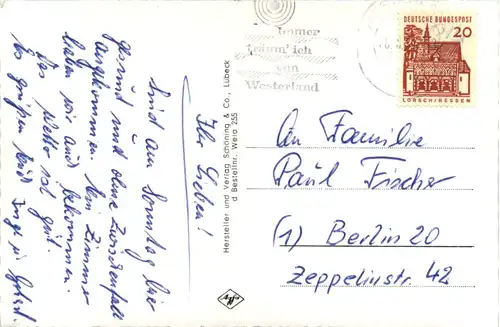 Ihr Lieben!
Sind am Sonntag hier
gesund und ohne Zwischenfall
angekommen. Ein Zimmer
haben wir auch bekommen.
Das Wetter ist gut.
Es grüßen Euch
Hersteller und Verlag Schöning & Co., Lübeck
Bestellnr. Weia 255
Agfa
immer
träum' ich
von
Westerland
DEUTSCHE BUNDESPOST
20
LORSCH/HESSEN
An Familie
Paul Fischer
(1) Berlin 20
Zeppelinstr. 42